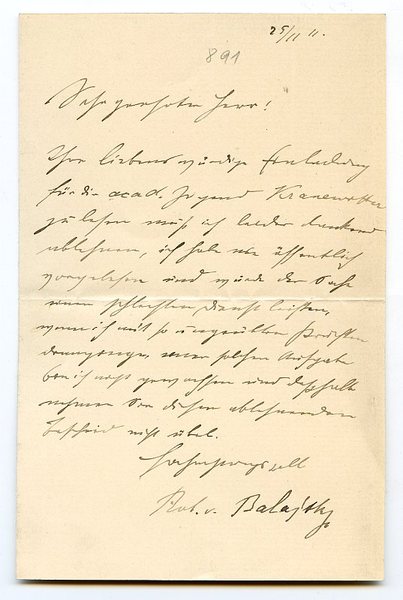 25/11 11.
891
Sehr geehrter Herr!
Ihre liebenswürdige Einladung
für die acad. Jugend Kranewitter
zu lesen muß ich leider dankend
ablehnen, ich habe nie öffentlich
vorgelesen und würde der Sache
einen schlechten Dienst leisten,
wenn ich mit so ungeübten
einer solchen Aufgabe
bin ich nicht gewachsen und deßhalb
nehmen Sie diesen ablehnenden
Bescheid nicht übel.
Hochachtungsvoll
Rob. v. Balajthy